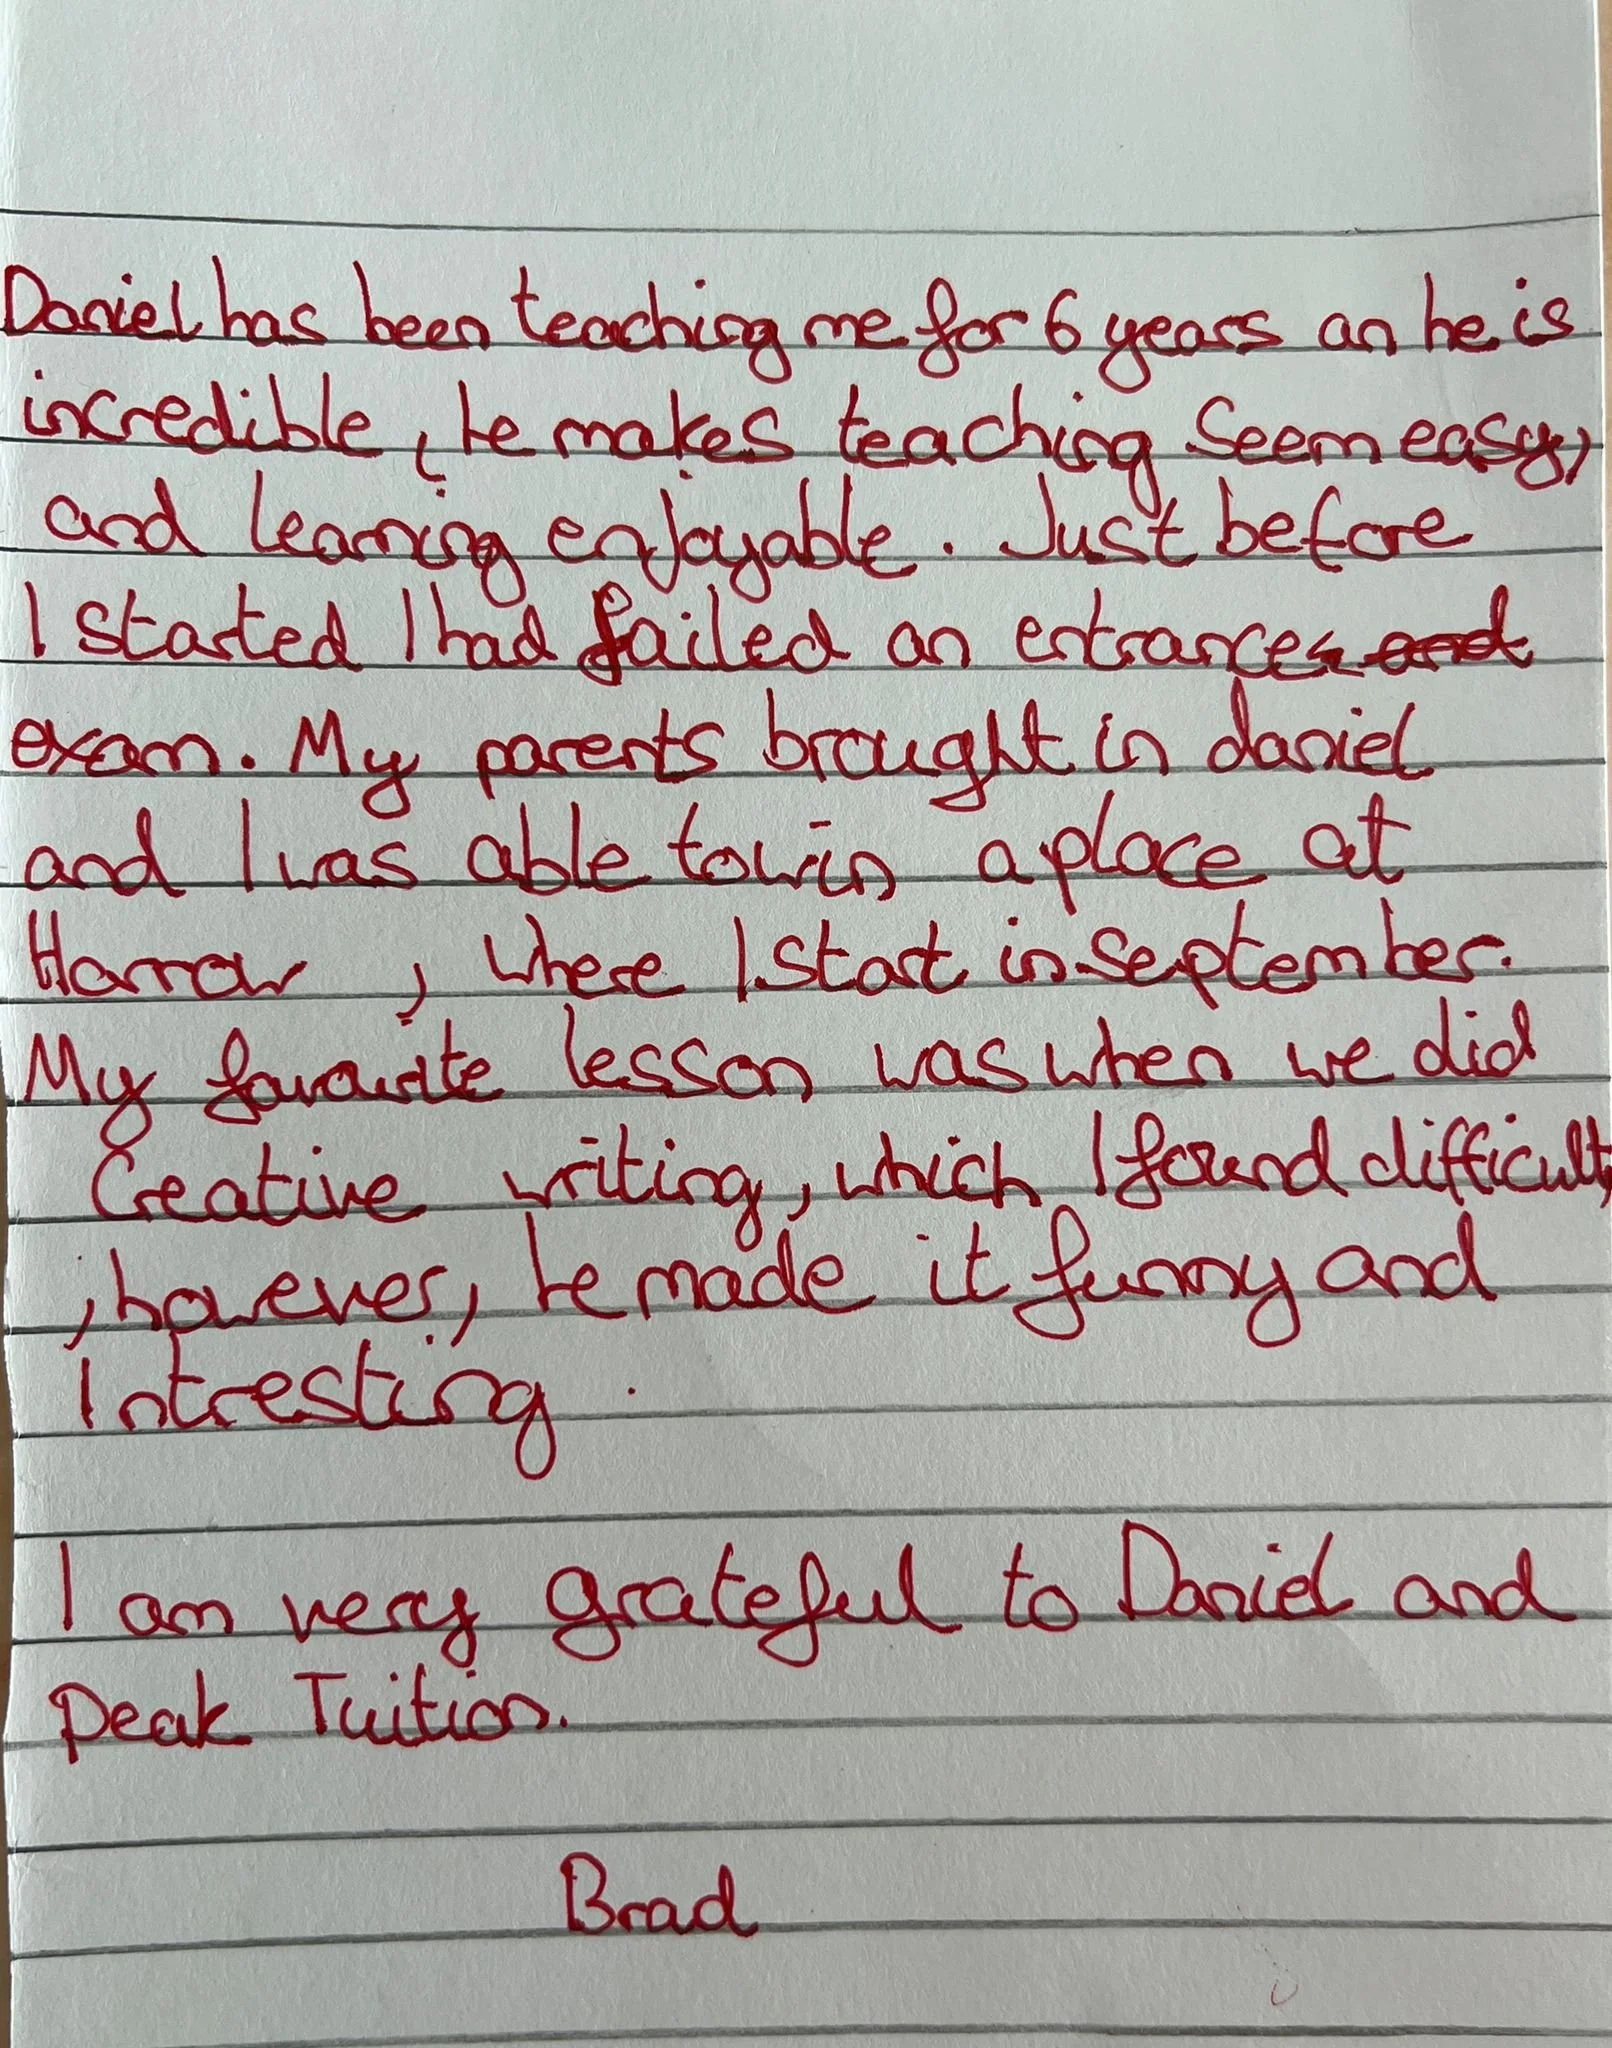 Daniel has been teaching me for 6 years an he is
incredible, he makes teaching seem easy,
and learning enjoyable. Just before
I started I had failed an entrance
exam. My parents brought in daniel
and I was able to win a place at
Harrow, where I start in September.
My favourite lesson was when we did
Creative writing, which I found difficult,
, however, he made it funny and
Intresting.
I am very grateful to Daniel and
Peak Tuition.
Brad